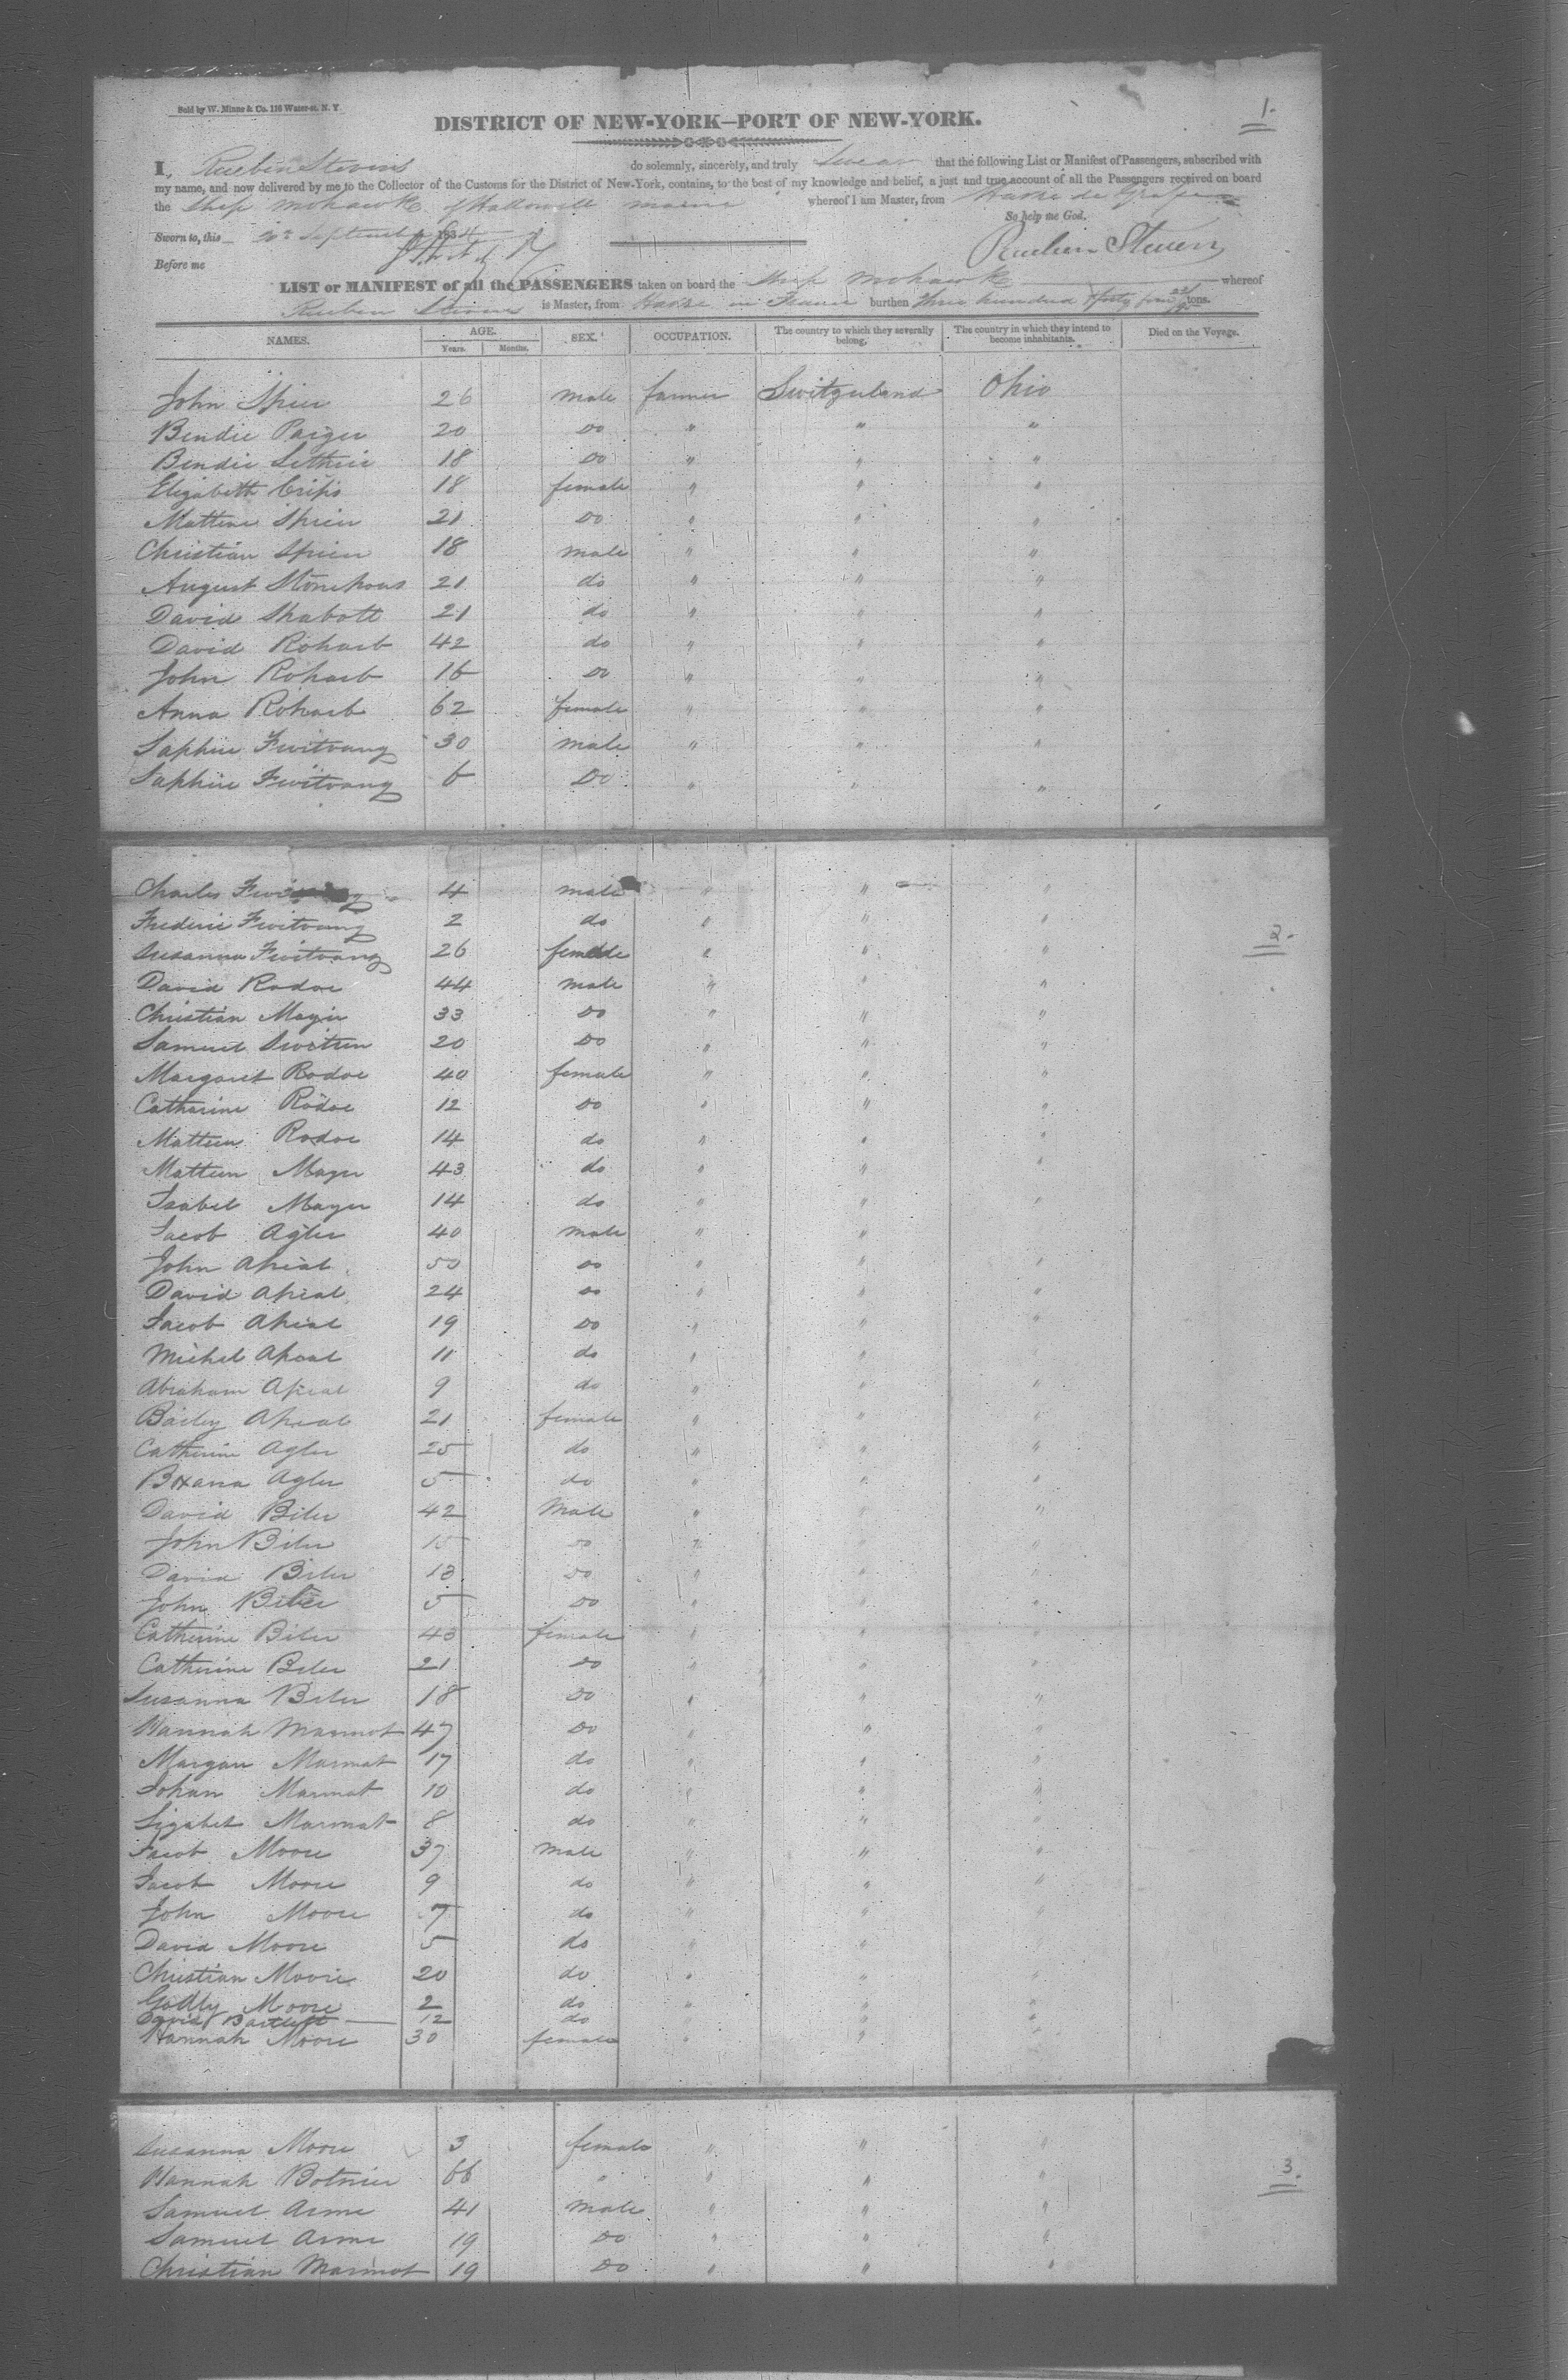 Sold by W. Minns & Co. 116 Water-st. N. Y.
1.
DISTRICT OF NEW-YORK—PORT OF NEW-YORK.
I, Reuben Stevens do solemnly, sincerely, and truly Swear that the following List or Manifest of Passengers, subscribed with
my name, and now delivered by me to the Collector of the Customs for the District of New-York, contains, to the best of my knowledge and belief, a just and true account of all the Passengers received on board
the Ship Mohawk of Hallowell Maine whereof I am Master, from Havre de
So help me God.
Sworn to, this 20th September 1834
Reuben Stevens
Before me
LIST or MANIFEST of all the PASSENGERS taken on board the Ship Mohawk whereof
Reuben Stevens is Master, from Havre in France burthen three hundred & forty five tons.
NAMES. AGE. SEX. OCCUPATION. The country to which they severally belong. The country in which they intend to become inhabitants. Died on the Voyage.
Years. Months.
John Spier 26 male farmer Switzerland Ohio
Bendic Paiger 20 Do " " "
Bendic Lethrie 18 Do " " "
Elizabeth Crips 18 female " " "
Mattene Sprier 21 Do " " "
Christian Sprier 18 male " " "
August Stonehous 21 do " " "
David Shabott 21 do " " "
David Roharb 42 do " " "
John Roharb 16 Do " " "
Anna Roharb 62 female " " "
Saphire Fwitvang 30 male " " "
Saphire Fwitvang 6 Do " " "
Charles 4 male " " "
Frederic Fwitvang 2 do " " "
2.
Susanna Fwitvang 26 female " " "
David Rodoe 44 male " " "
Christian Mayer 33 Do " " "
Samuel Switzen 20 Do " " "
Margaret Rodoe 40 female " " "
Catharine Rodoe 12 Do " " "
Matteen Rodoe 14 do " " "
Matteen Mayer 43 do " " "
Isabel Mayer 14 do " " "
Jacob Agler 40 male " "
John Apeal 50 Do " " "
David Apeal 24 Do " " "
Jacob Apeal 19 Do " " "
Michel Apeal 11 do " "
Abraham Apeal 9 do " " "
Baily Apeal 21 female " " "
Catherine Agler 25 do " " "
Agler 5 do " " "
David Biler 42 Male " " "
John Biler 15 Do " " "
David Biler 13 Do " " "
John Biler 5 Do " " "
Catherine Biler 43 female " " "
Catherine Biler 21 Do " " "
Susanna Biler 18 Do " " "
Hannah Marmot 47 Do " " "
Margan Marmat 17 do " " "
Johan Marmat 10 do " " "
Lizabet Marmat 8 do " " "
Jacob Moore 37 Male " " "
Jacob Moore 9 do " " "
John Moore 7 do " " "
David Moore 5 do " " "
Christian Moore 20 do " " "
Godly Moore 2 do " " "
David Bartlett 12 do " " "
Hannah Moore 30 female " " "
Susanna Moore 3 female " " "
Hannah Botnier 66 " " " "
3.
Samuel Arme 41 Male " " "
Samuel Arme 19 Do " " "
Christian Marmot 19 Do " " "